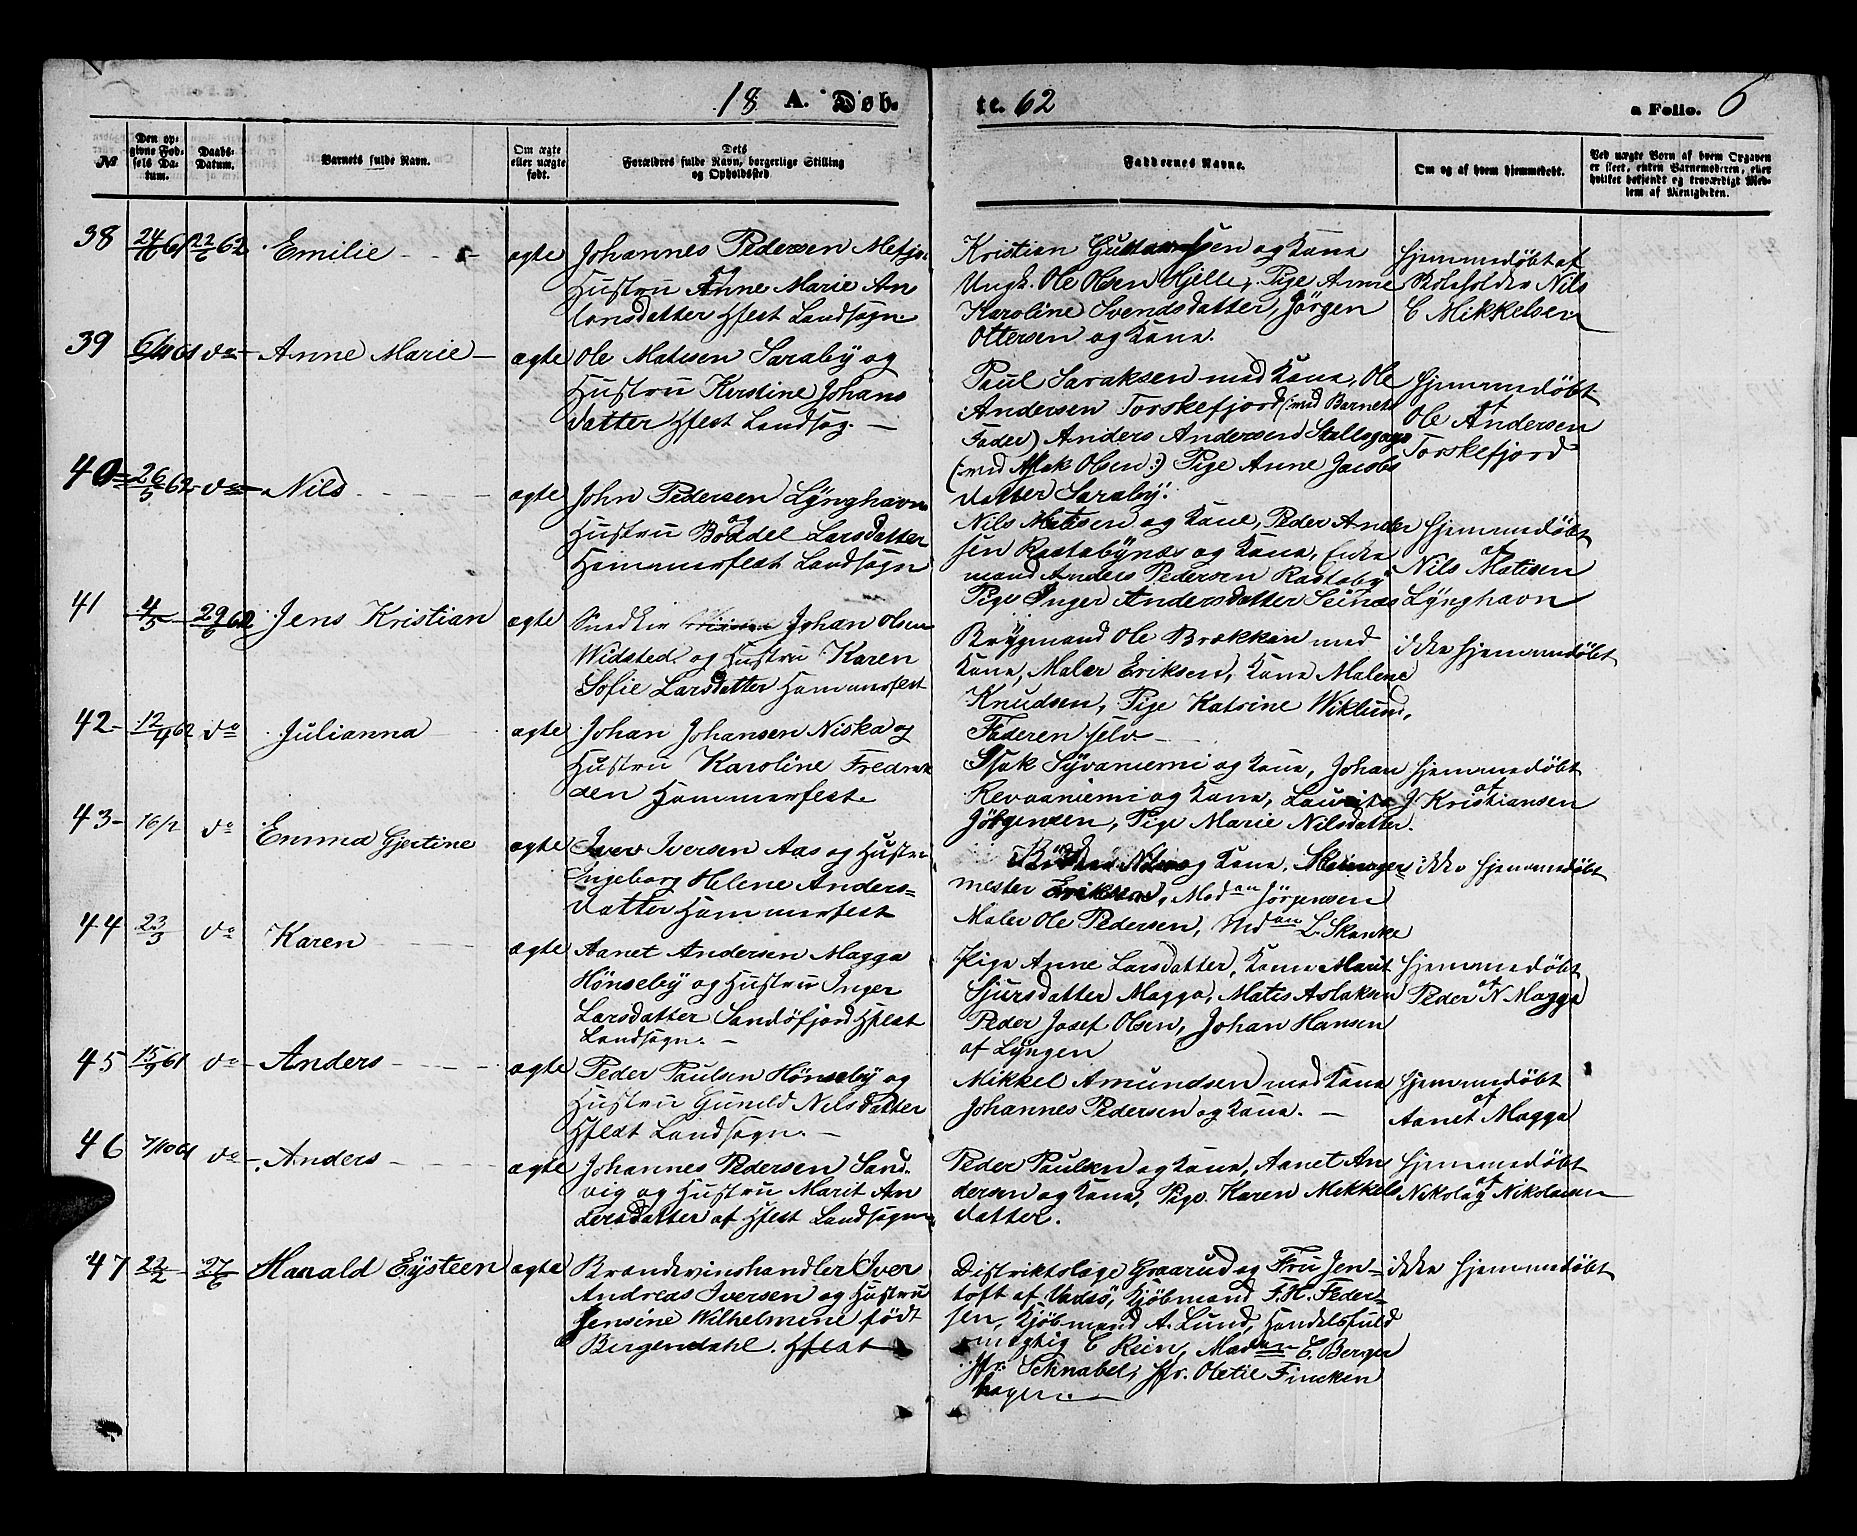 18 A. Døb-
te. 62
a Folio. 6
No
Den opgivne Fødsels Datum.
Daabs-Datum.
Barnets fulde Navn.
Om ægte eller uægte født.
Dets Forældres fulde Navn, borgerlige Stilling og Opholdssted.
Faddernes Navne.
Om og af hvem hjemmedøbt.
Ved uægte Børn af hvem Opgaven er skeet, enten Barnemoderen, eller hvilket bekjendt og troværdigt Medlem af Menigheden.
38 24/10 61 22/6 62 Emilie
ægte
Johannes Pedersen Mefjo.
Hustru Anne Marie An
tonsdatter Hfest Landsogn
Kristian Gustavsen og Kone
Ungk. Ole Olsen Hjelle, Pige Anne
Karoline Svendsdatter, Jörgen
Ottersen og Kone.
Hjemmedøbt af
Skoleholder Nils
C Mikkelsen
39 6/10 61 do Anne Marie
ægte
Ole Matisen Saraby og
Hustru Kerstine Johans
datter Hfest Landsog.
Paul Saraksen med Kone, Ole
Andersen Torskefjord (:med Barnets
Fader) Anders Andersen
(:med Aslak Olsen:) Pige Anne Jacobs
datter Saraby.
Hjemmedøbt
af
Ole Andersen
Torskefjord
40 26/5 62 do Nils
ægte
John Pedersen Lynghavn
og
Hustru Boddel Larsdatter
Hammerfest Landsogn
Nils Matisen og Kone, Peder Ander
sen Rastabynæs og Kone, Enke
mand Anders Pedersen Rastaby
Pige Inger Andersdatter Seinæs
Hjemmedøbt
af
Nils Matisen
Lynghavn
41 4/5 29/6 62 Jens Kristian
ægte
Snedker Johan Olsen
Widsted og Hustru Karen
Sofie Larsdatter Hammerfest
Brygmand Ole Brækken med
Kone, Maler Eriksen, Kone Malene
Knudsen, Pige Katrine Wiklund,
Faderen selv
ikke hjemmedøbt
42 12/4 62 do Julianna
ægte
Johan Johansen Niska og
Hustru Karoline Fredrik
den Hammerfest
Isak Syvaniemi og Kone, Johan
Revaaniemi og Kone, Lauritz
Jörgensen, Pige Marie Nilsdatter.
hjemmedøbt
af
J. Kristiansen
43 16/2 do Emma Gjertine
ægte
Iver Iversen Aas og Hustru
Ingeborg Helene Anders-
datter Hammerfest
og Kone,
mester Eriksen, Madan Jörgensen
Maler Ole Pedersen, Madan L. Skanke
ikke hjemmedøbt
44 23/3 do Karen
ægte
Aanet Andersen Magga
Hönseby og Hustru Inger
Larsdatter Sandöfjord Hfest
Landsogn.
Pige Anne Larsdatter, Kone Marit
Sjursdatter Magga, Matis Aslaksen
Peder Josef Olsen, Johan Hansen
af Lyngen
hjemmedøbt
af
Peder N Magga
45 15/9 61 do Anders
ægte
Peder Paulsen Hönseby og
Hustru Gunild Nilsdatter
Hfest Landsogn.
Mikkel Amundsen med Kone
Johannes Pedersen og Kone.
hjemmedøbt
af
Aanet Magga
46 7/10 61 do Anders
ægte
Johannes Pedersen Sand-
vig og Hustru Marit An
dersdatter af Hfest Landsogn
Peder Paulsen og Kone, Aanet An
dersen og Kone, Pige Karen Mikkels
datter.
hjemmedøbt
af
Nikolay Nikolaisen
47 22/2 27/6 Harald Eysteen
ægte
Brændevinshandler Iver
Andreas Iversen og Hustru
Jensine Wilhelmine født
Bergendahl. Hfest
Distriktslæge Graarud og Fru Jen-
toft af Vadsö, Kjöbmand F. H. Feder-
sen, Kjöbmand A. Lund, Handelsfuld
mægtig C Rein, Madan C. Berger
Jfr. Schnabel, Jfr. Oletie Fincken
hagen.
ikke hjemmedøbt